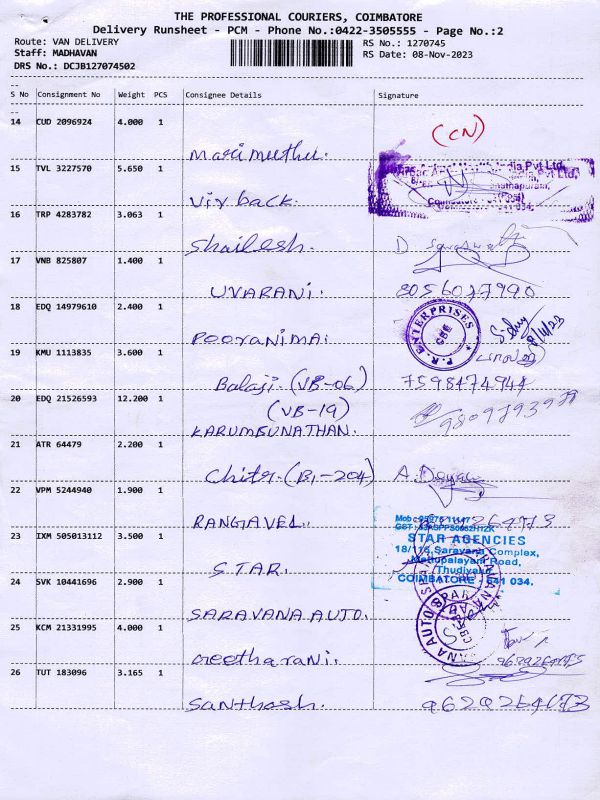 THE PROFESSIONAL COURIERS, COIMBATORE
Delivery Runsheet - PCM - Phone No.:0422-3505555 - Page No.:2
Route: VAN DELIVERY RS No.: 1270745
Staff: MADHAVAN RS Date: 08-Nov-2023
DRS No.: DCJB127074502
S No Consignment No Weight PCS Consignee Details Signature
14 CUD 2096924 4.000 1 Marimuthu. (CN)
15 TVL 3227570 5.650 1 Vir back.
India Pvt Ltd,
Coimbatore
16 TRP 4283782 3.063 1 Shailesh.
17 VNB 825807 1.400 1 UVARANI. 8056077990
18 EDQ 14979610 2.400 1 POORANIMA.
P. R. ENTERPRISES
CBE
8/11/23
19 KMU 1113835 3.600 1 Balaji. (VB-06) 7598474944
20 EDQ 21526593 12.200 1 (VB-19)
KARUMBUNATHAN.
21 ATR 64479 2.200 1 Chitr. (B1-204)
22 VPM 5244940 1.900 1 RANGAVEL.
23 IXM 505013112 3.500 1 S.TAR.
STAR AGENCIES
18/116, Saravana Complex,
Mettupalayam Road,
Thudiyalur
COIMBATORE - 641 034.
24 SVK 10441696 2.900 1 SARAVANA AUTO.
25 KCM 21331995 4.000 1 Geetharani.
26 TUT 183096 3.165 1 Santhosh. 9629264073